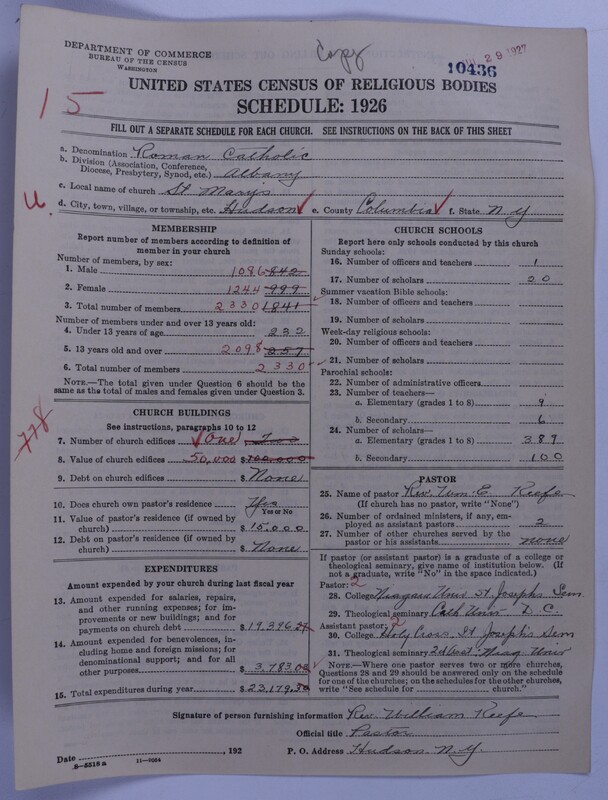 Copy
DEPARTMENT OF COMMERCE
BUREAU OF THE CENSUS
WASHINGTON
29 1927
10436
UNITED STATES CENSUS OF RELIGIOUS BODIES
SCHEDULE: 1926
15
FILL OUT A SEPARATE SCHEDULE FOR EACH CHURCH. SEE INSTRUCTIONS ON THE BACK OF THIS SHEET
a. Denomination Roman Catholic
b. Division (Association, Conference, Diocese, Presbytery, Synod, etc.) Albany
c. Local name of church St Mary's
d. City, town, village, or township, etc. Hudson e. County Columbia f. State N.Y.
MEMBERSHIP
Report number of members according to definition of
member in your church
Number of members, by sex:
1. Male 1086 842
2. Female 1244 999
3. Total number of members 2330 1841
Number of members under and over 13 years old:
4. Under 13 years of age 232
5. 13 years old and over 2098 257
6. Total number of members 2330
NOTE.—The total given under Question 6 should be
same as the total of males and females given under Question 3.
778
CHURCH BUILDINGS
See instructions, paragraphs 10 to 12
7. Number of church edifices One Two
8. Value of church edifices 50,000 $100,000
9. Debt on church edifices $ None
10. Does church own pastor's residence? Yes
Yes or No
11. Value of pastor's residence (if owned by
church) $ 15,000
12. Debt on pastor's residence (if owned by
church) $ None
EXPENDITURES
Amount expended by your church during last fiscal year
13. Amount expended for salaries, repairs,
and other running expenses; for im-
provements or new buildings; and for
payments on church debt $19,396.27
14. Amount expended for benevolences, in-
cluding home and foreign missions; for
denominational support; and for all
other purposes $ 3,783.03
15. Total expenditures during year $23,179.30
CHURCH SCHOOLS
Report here only schools conducted by this church
Sunday schools:
16. Number of officers and teachers 1
17. Number of scholars 20
Summer vacation Bible schools:
18. Number of officers and teachers
19. Number of scholars
Week-day religious schools:
20. Number of officers and teachers
21. Number of scholars
Parochial schools:
22. Number of administrative officers
23. Number of teachers—
a. Elementary (grades 1 to 8) 9
b. Secondary 6
24. Number of scholars—
a. Elementary (grades 1 to 8) 389
b. Secondary 100
PASTOR
25. Name of pastor Rev. Wm. E. Keefe
(If church has no pastor, write "None")
26. Number of ordained ministers, if any, em-
ployed as assistant pastors 2
27. Number of other churches served by the
pastor or his assistants none
If pastor (or assistant pastor) is a graduate of a college or
theological seminary, give name of institution below. (If
not a graduate, write "No" in the space indicated.)
Pastor: 2
28. College Niagara Univ St. Josephs Sem
29. Theological seminary Cath Univ D.C.
Assistant pastor: 2
30. College Holy Cross, St Josephs Sem
31. Theological seminary Niag Univ
NOTE.—Where one pastor serves two or more churches,
Questions 28 and 29 should be answered only on the schedule
for one of the churches; on the schedules for the other churches,
write "See schedule for ........ church."
Signature of person furnishing information Rev. William Keefe
Official title Pastor
Date ........, 192 P. O. Address Hudson N.Y.
8-5318a 11-9024